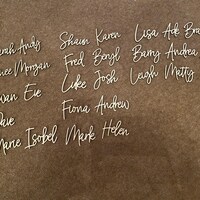 Sarah Andy Shaun Karen Lisa Ade
Morgan Fred Beryl Barry Andrea
Ewan Eve Luke Josh Leigh Matty
Fiona Andrew
Marie Isobel Mark Helen